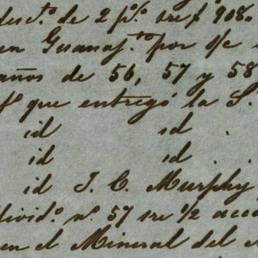 de 2 p% sre $ 908.
en Guanajto por
años de 56, 57 y 58
que entregó la S.
id id .
id id .
id J. C. Murphy
divido no 57 sre 1/2 acc
en el Mineral del